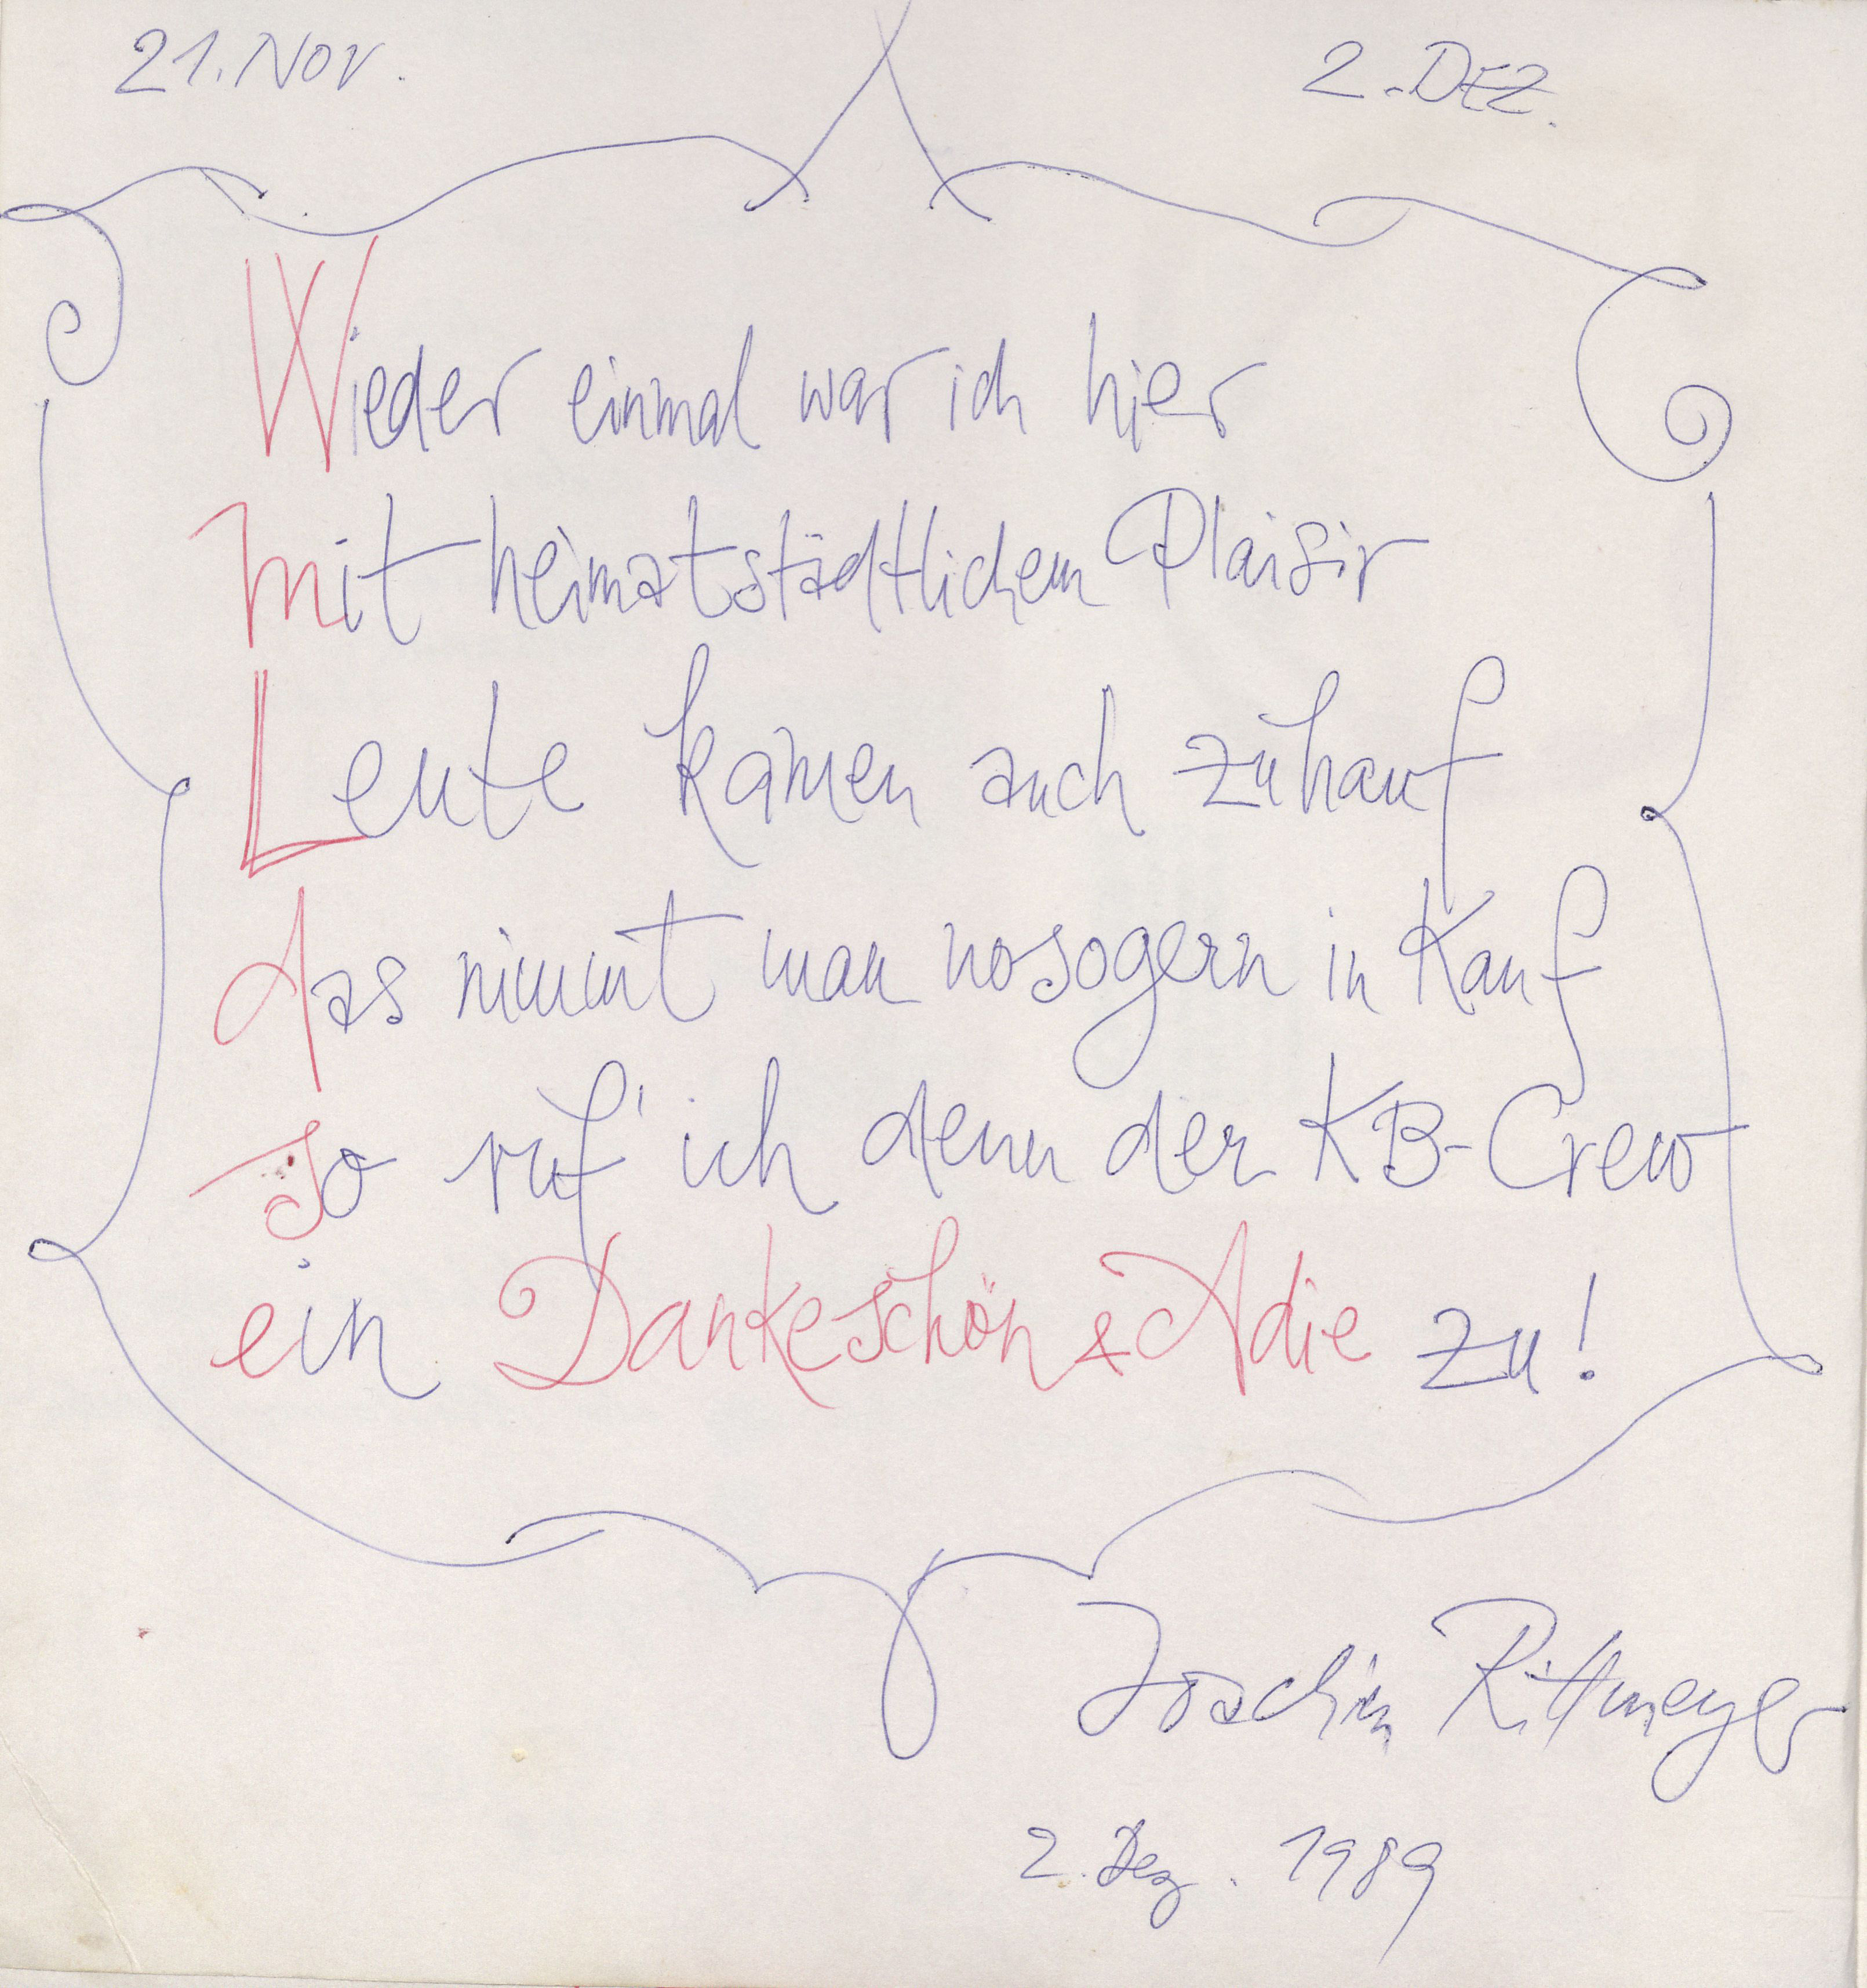 21. NOV. 2. DEZ.
Wieder einmal war ich hier
mit heimatstädtlichem Plaisir
Leute kamen auch zuhauf
das nimmt man nosogern in Kauf
so ruf' ich denn der KB-Crew
ein Dankeschön & Adie zu!
Joachim Rittmeyer
2. Dez. 1989